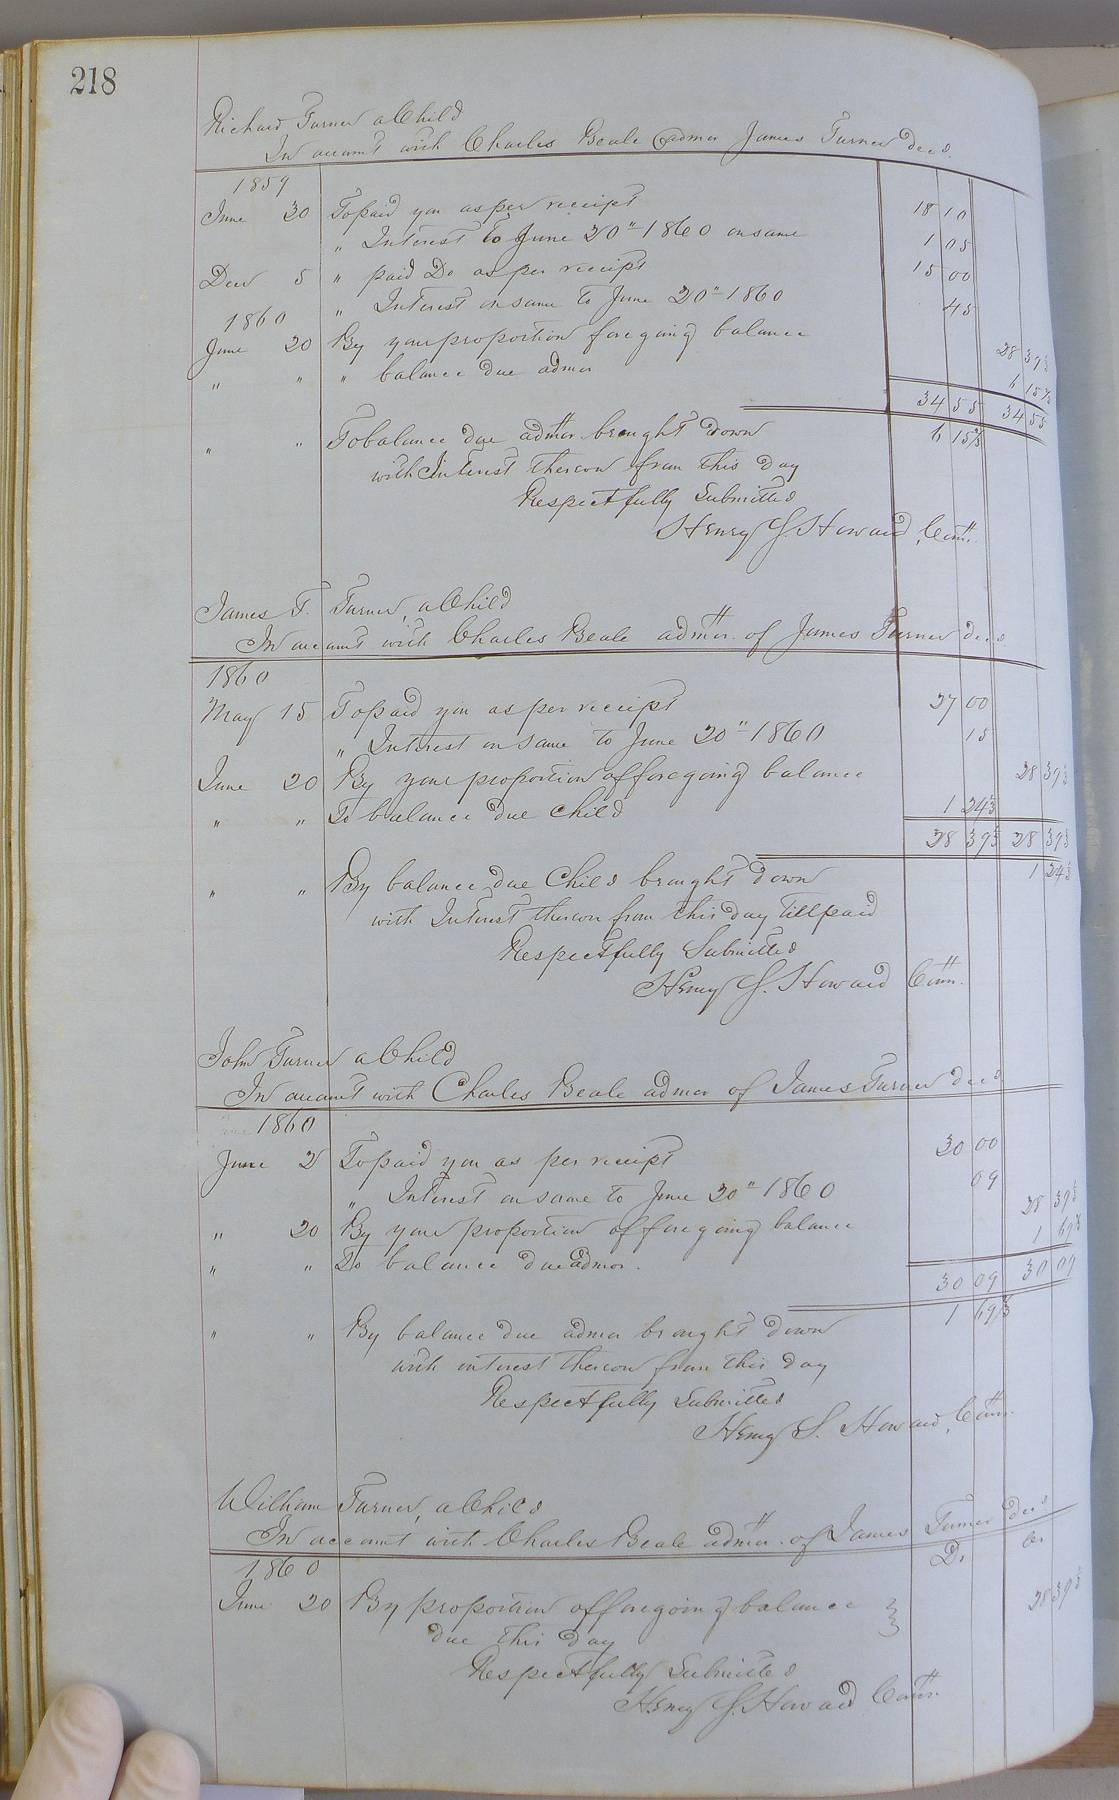 218
Richard Turner a Child
In account with Charles Beale admor James Turner decd.
1859
June 30 To paid you as per receipt 18 10
" Interest to June 20" 1860 on same 1 05
Decr 5 " paid Do as per receipt 15 00
1860 " Interest on same to June 20" 1860 45
June 20 By your proportion foregoing balance 28 39⅓
" " " balance due admor 6 15⅔
34 55 34 55
" " To balance due admor brought down 6 15⅔
with Interest thereon from this day
Respectfully Submitted
Henry S. Howard, Comr.
James T. Turner, a Child
In account with Charles Beale admor. of James Turner decd
1860
May 15 To paid you as per receipt 27 00
" Interest on same to June 20" 1860 15
June 20 By your proportion of foregoing balance 28 39⅓
" " To balance due Child 1 24⅓
28 39⅓ 28 39⅓
" " By balance due Child brought down 1 24⅓
with Interest thereon from this day till paid
Respectfully Submitted
Henry S. Howard Comr.
John Turner a Child
In account with Charles Beale admor of James Turner decd
1860
June 2 To paid you as per receipt 30 00
" Interest on same to June 20" 1860 09
" 20 By your proportion of foregoing balance 28 39⅓
" " To balance due admor. 1 69⅔
30 09 30 09
" " By balance due admor brought down 1 69⅔
with interest thereon from this day
Respectfully Submitted
Henry S. Howard, Comr.
William Turner, a Child
In account with Charles Beale admor. of James Turner decd
1860 Dr Cr
June 20 By proportion of foregoing balance } 28 39⅓
due this day
Respectfully Submitted
Henry S. Howard Comr.